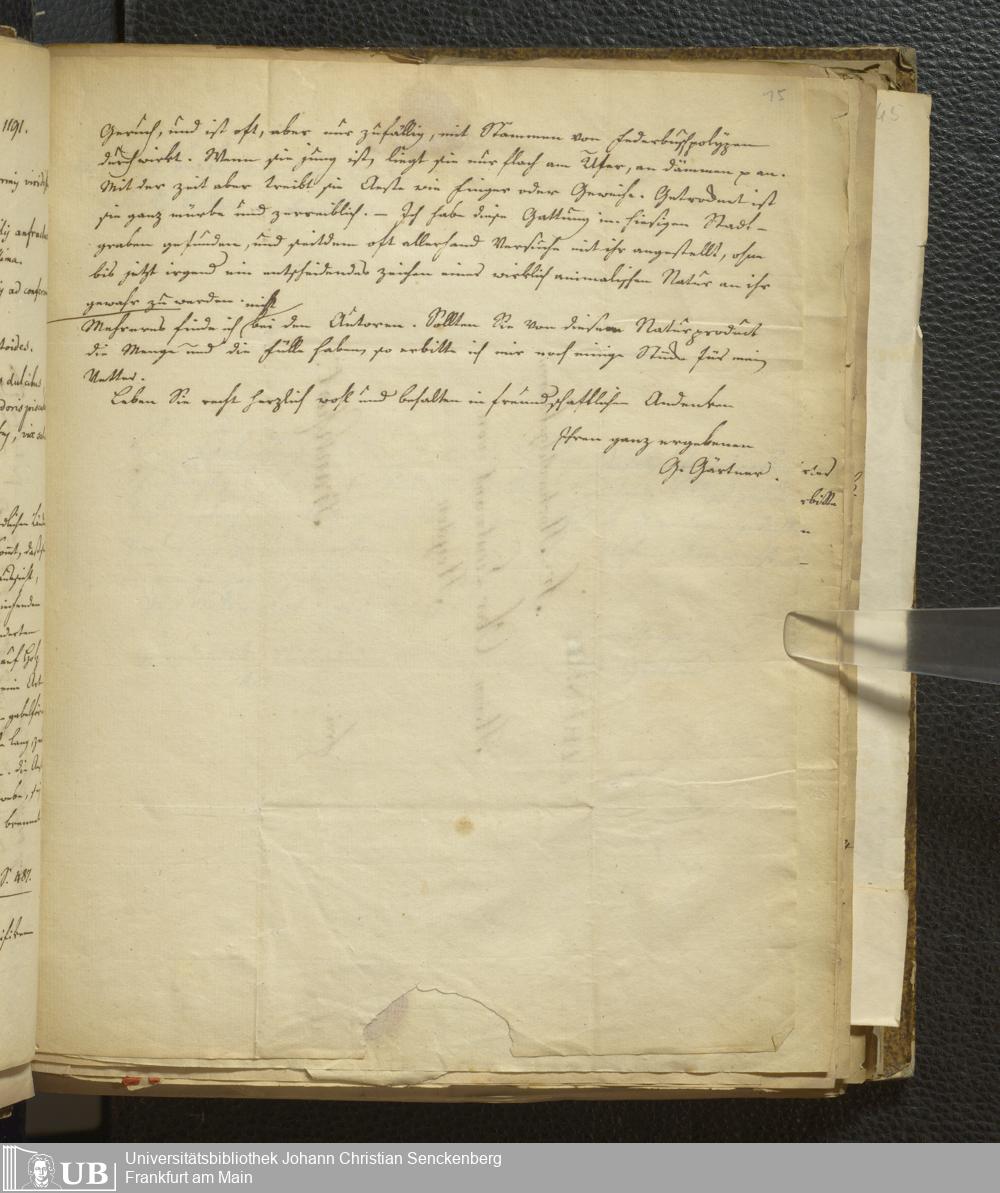 15
Geruch, und ist oft, aber nur zufällig, mit Stammen von Federbuschpolÿpen
durchwirkt. Wenn sie jung ist, liegt sie nur flach am Ufer, an dämmen p an.
Mit der Zeit aber treibt sie Aeste wie Finger oder Geweihe. Getrocknet ist
sie ganz mürbe und zerreiblich. – Ich habe diese Gattung im hiesigen Stadt-
graben gefunden, und seitdem oft allerhand Versuche mit ihr angestellt, ohne
bis jetzt irgend ein entscheidendes Zeichen einer wirklich animalischen Natur an ihr
gewahr zu werden.
Mehreres finde ich nicht bei den Autoren. Sollten Sie von diesem Naturproduct
die Menge und die Fülle haben, so erbitte ich mir noch einige Stücke für mein
Vetter.
Leben Sie recht herzlich wohl und behalten in freundschaftlichem Andenken
Ihren ganz ergebenen
G. Gärtner.
1191.
45
S. 487.
UB
Universitätsbibliothek Johann Christian Senckenberg
Frankfurt am Main